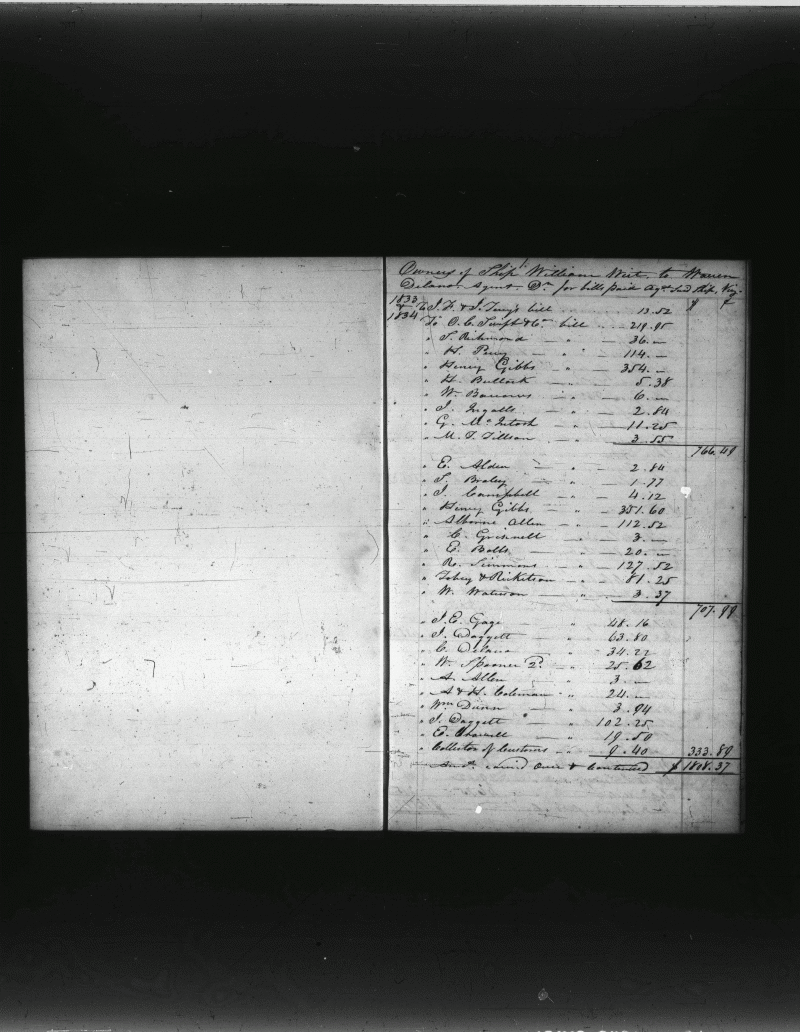 Owners of Ship William Wirt to Warren
Delano Agent Dr for bills paid Agt Said Ship, Viz
1833 & To J. H. & I. Terry's bill 13.52 $ ¢
1834 To O. C. Swift & Co bill 219.95
" S. Richmond — " — 36.—
" H. Perry — " — 114.—
" Henry Gibbs — " — 354.—
" H. Bullock — " — 5.38
" W. Barrows — " — 6.—
" J. Ingalls — " — 2.84
" G. McIntosh — " — 11.25
" M. T. Tillson — " — 3.55
766.49
" E. Alden — " — 2.84
" T. Braley — " — 1.77
" J. Campbell — " — 4.12
" Henry Gibbs — " — 351.60
" Allen — " — 112.52
" C. Grinnell — " — 3.—
" E. Batts — " — 20.—
" R. Simmons — " — 127.52
" Tobey & Ricketson — " — 81.25
" W. Waterson — " — 3.37
707.99
" J. E. Gage — " 48.16
" J. Daggett — " 63.80
" C. Delano — " 34.22
" W. Spooner 2d — " 25.62
" A. Allen — " 3.—
" A & H. Coleman — " 24.—
" Wm Dunn — " 3.94
" J. Daggett " — " 102.25
" E. — " 19.50
" Collector of Customs — " 9.40 333.89
" Amt carried Over & Continued $ 1808.37